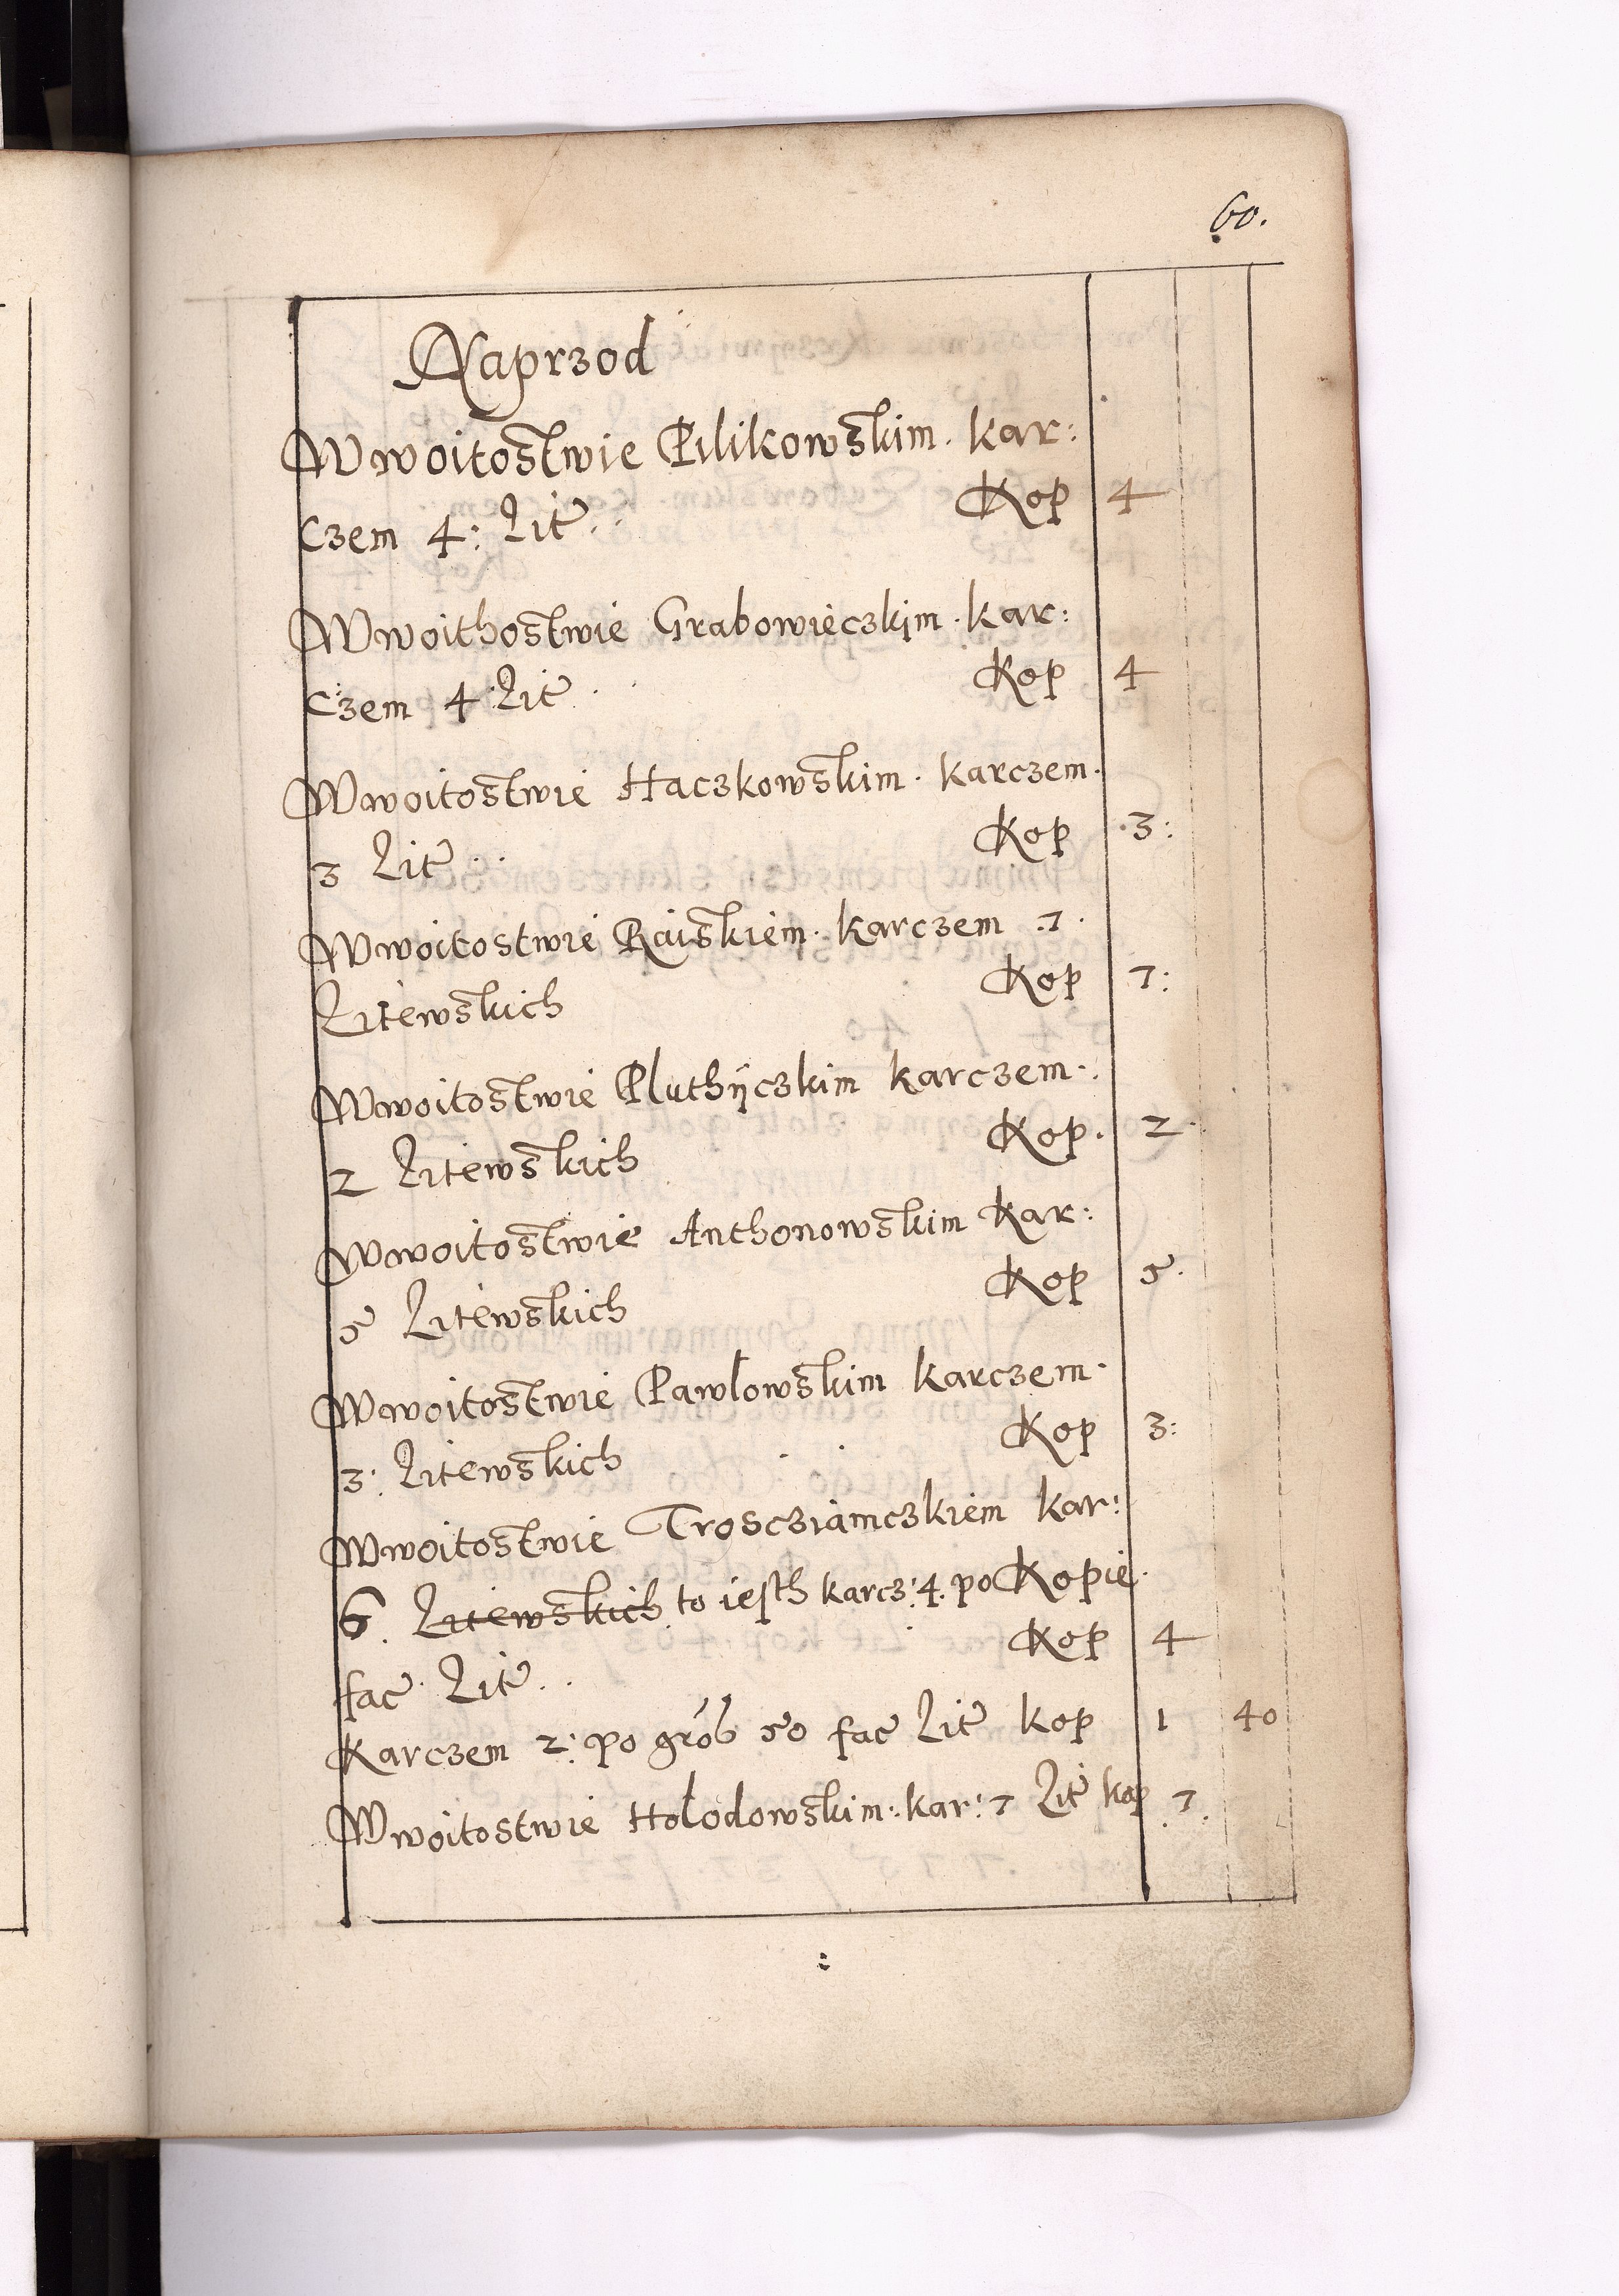 60.
Naprzod
Wwoitostwie Pilikowskim. kar:
czem 4: Lit. Kop 4
Wwoithostwie Grabowieczkim. kar:
czem 4 Lit Kop 4
Wwoitostwie Haczkowskim. karczem.
3 Lit Kop 3:
Wwoitostwie Raiskiem. karczem 7.
Litewskich Kop 7:
Wwoitostwie Pluthyczkim karczem.
2 Litewskich Kop. 2.
Wwoitostwie Anthonowskim Kar:
5 Litewskich Kop 5.
Wwoitostwie Pawlowskim karczem.
3: Litewskich Kop 3:
Wwoitostwie Troscziamczkiem kar:
6. Litewskich to iesth karcz: 4. po Kopie.
fac. Lit. Kop 4
Karczem 2: po 50 fac Lit kop 1 40
Wwoitostwie Holodowskim: kar: 7 Lit kop 7.